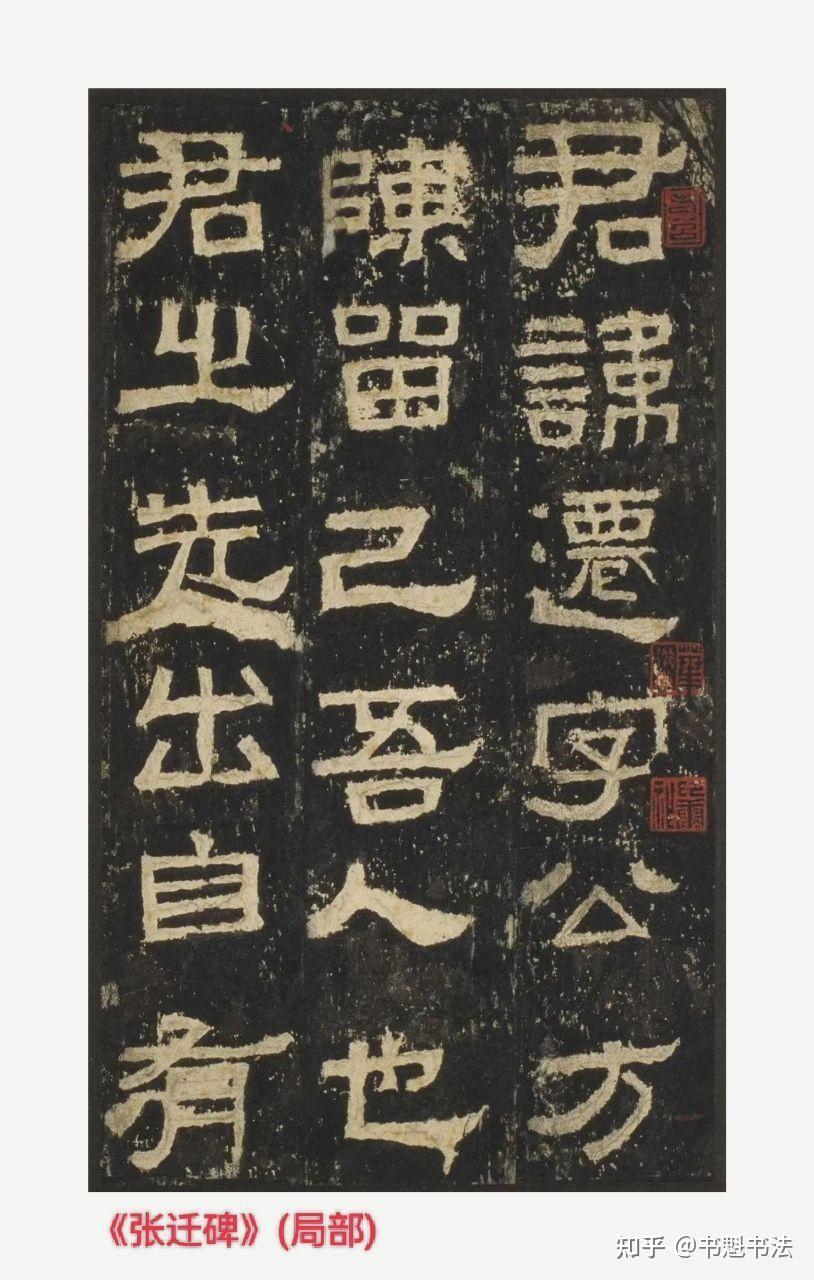 君諱遷字公方
陳留己吾人也
君之先出自有
《张迁碑》(局部)
知乎 @书魁书法